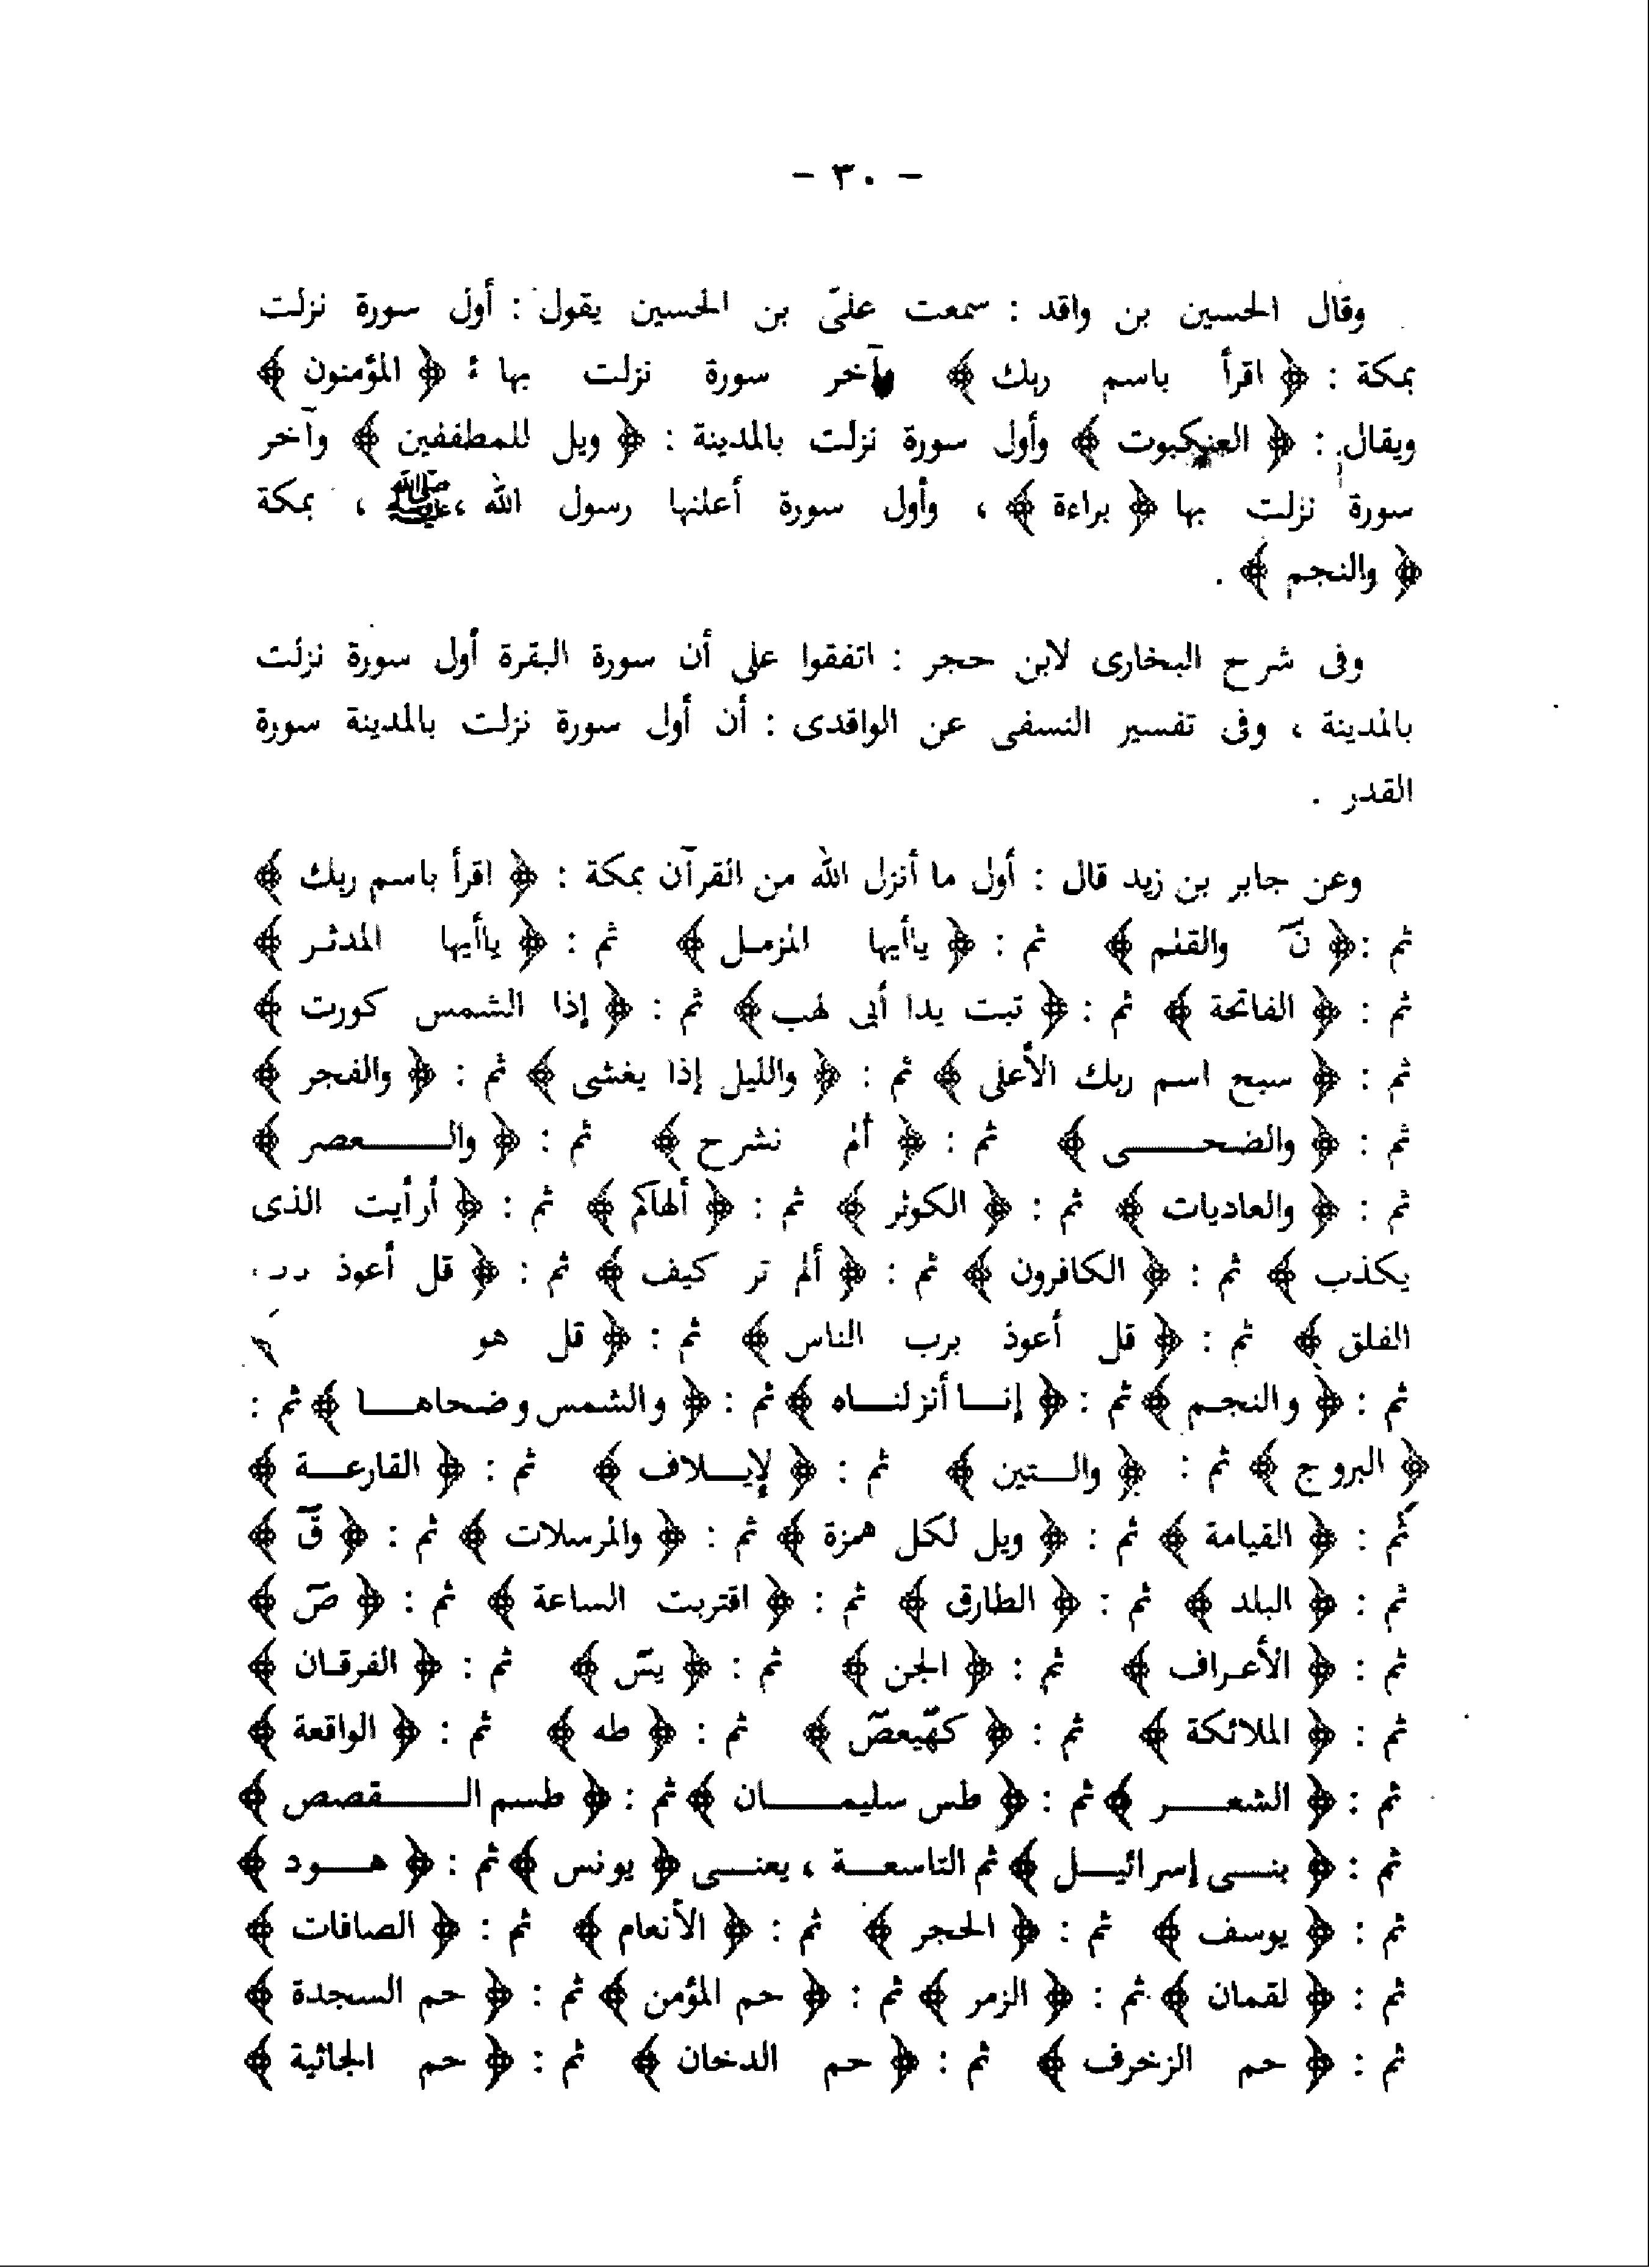 – ٣٠ –
وقال الحسين بن واقد : سمعت علىّ بن الحسين يقول : أول سورة نزلت
بمكة : ﴿ اقرأ باسم ربك ﴾ وآخر سورة نزلت بها : ﴿ المؤمنون ﴾
ويقال : ﴿ العنكبوت ﴾ وأول سورة نزلت بالمدينة : ﴿ ويل للمطففين ﴾ وآخر
سورة نزلت بها ﴿ براءة ﴾ ، وأول سورة أعلنها رسول الله ، ﷺ ، بمكة
﴿ والنجم ﴾ .
وفى شرح البخارى لابن حجر : اتفقوا على أن سورة البقرة أول سورة نزلت
بالمدينة ، وفى تفسير النسفى عن الواقدى : أن أول سورة نزلت بالمدينة سورة
القدر .
وعن جابر بن زيد قال : أول ما أنزل الله من القرآن بمكة : ﴿ اقرأ باسم ربك ﴾
ثم : ﴿ نٓ والقلم ﴾ ثم : ﴿ ياأيها المزمل ﴾ ثم : ﴿ ياأيها المدثر ﴾
ثم : ﴿ الفاتحة ﴾ ثم : ﴿ تبت يدا أبى لهب ﴾ ثم : ﴿ إذا الشمس كورت ﴾
ثم : ﴿ سبح اسم ربك الأعلى ﴾ ثم : ﴿ والليل إذا يغشى ﴾ ثم : ﴿ والفجر ﴾
ثم : ﴿ والضحــى ﴾ ثم : ﴿ ألم نشرح ﴾ ثم : ﴿ والــعصر ﴾
ثم : ﴿ والعاديات ﴾ ثم : ﴿ الكوثر ﴾ ثم : ﴿ ألهاكم ﴾ ثم : ﴿ أرأيت الذى
يكذب ﴾ ثم : ﴿ الكافرون ﴾ ثم : ﴿ ألم تر كيف ﴾ ثم : ﴿ قل أعوذ
الفلق ﴾ ثم : ﴿ قل أعوذ برب الناس ﴾ ثم : ﴿ قل هو ﴾
ثم : ﴿ والنجم ﴾ ثم : ﴿ إنــا أنزلنــاه ﴾ ثم : ﴿ والشمس وضحاهــا ﴾ ثم :
﴿ البروج ﴾ ثم : ﴿ والــتين ﴾ ثم : ﴿ لإيــلاف ﴾ ثم : ﴿ القارعــة ﴾
ثم : ﴿ القيامة ﴾ ثم : ﴿ ويل لكل همزة ﴾ ثم : ﴿ والمرسلات ﴾ ثم : ﴿ قٓ ﴾
ثم : ﴿ البلد ﴾ ثم : ﴿ الطارق ﴾ ثم : ﴿ اقتربت الساعة ﴾ ثم : ﴿ صٓ ﴾
ثم : ﴿ الأعراف ﴾ ثم : ﴿ الجن ﴾ ثم : ﴿ يسٓ ﴾ ثم : ﴿ الفرقان ﴾
ثم : ﴿ الملائكة ﴾ ثم : ﴿ كهٓيعصٓ ﴾ ثم : ﴿ طه ﴾ ثم : ﴿ الواقعة ﴾
ثم : ﴿ الشعــر ﴾ ثم : ﴿ طس سليمــان ﴾ ثم : ﴿ طسم الــقصص ﴾
ثم : ﴿ بنــى إسرائيــل ﴾ ثم التاسعــة ، يعنــى ﴿ يونس ﴾ ثم : ﴿ هــود ﴾
ثم : ﴿ يوسف ﴾ ثم : ﴿ الحجر ﴾ ثم : ﴿ الأنعام ﴾ ثم : ﴿ الصافات ﴾
ثم : ﴿ لقمان ﴾ ثم : ﴿ الزمر ﴾ ثم : ﴿ حم المؤمن ﴾ ثم : ﴿ حم السجدة ﴾
ثم : ﴿ حم الزخرف ﴾ ثم : ﴿ حم الدخان ﴾ ثم : ﴿ حم الجاثية ﴾